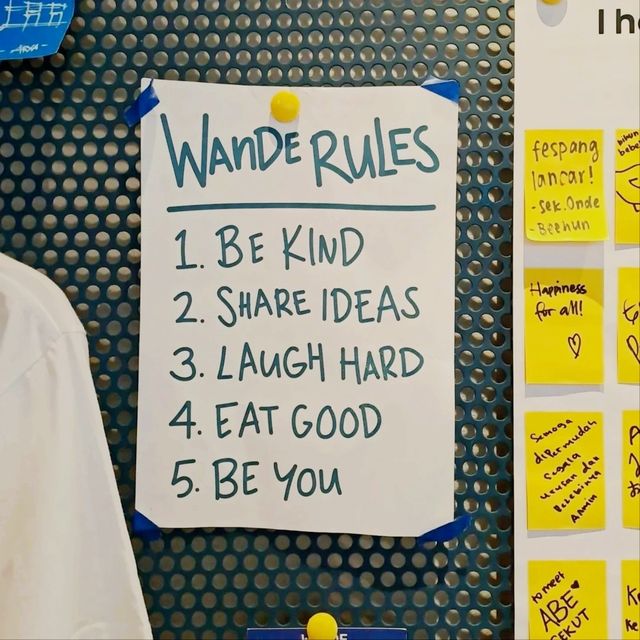 WANDE RULES
1. BE KIND
2. SHARE IDEAS
3. LAUGH HARD
4. EAT GOOD
5. BE YOU
I h
fespang
lancar!
-sek.Onde
-Beehun
Happiness
for all!
Semoga
dipermudah
segala
urusan dan
Aamiin
to meet
ABE